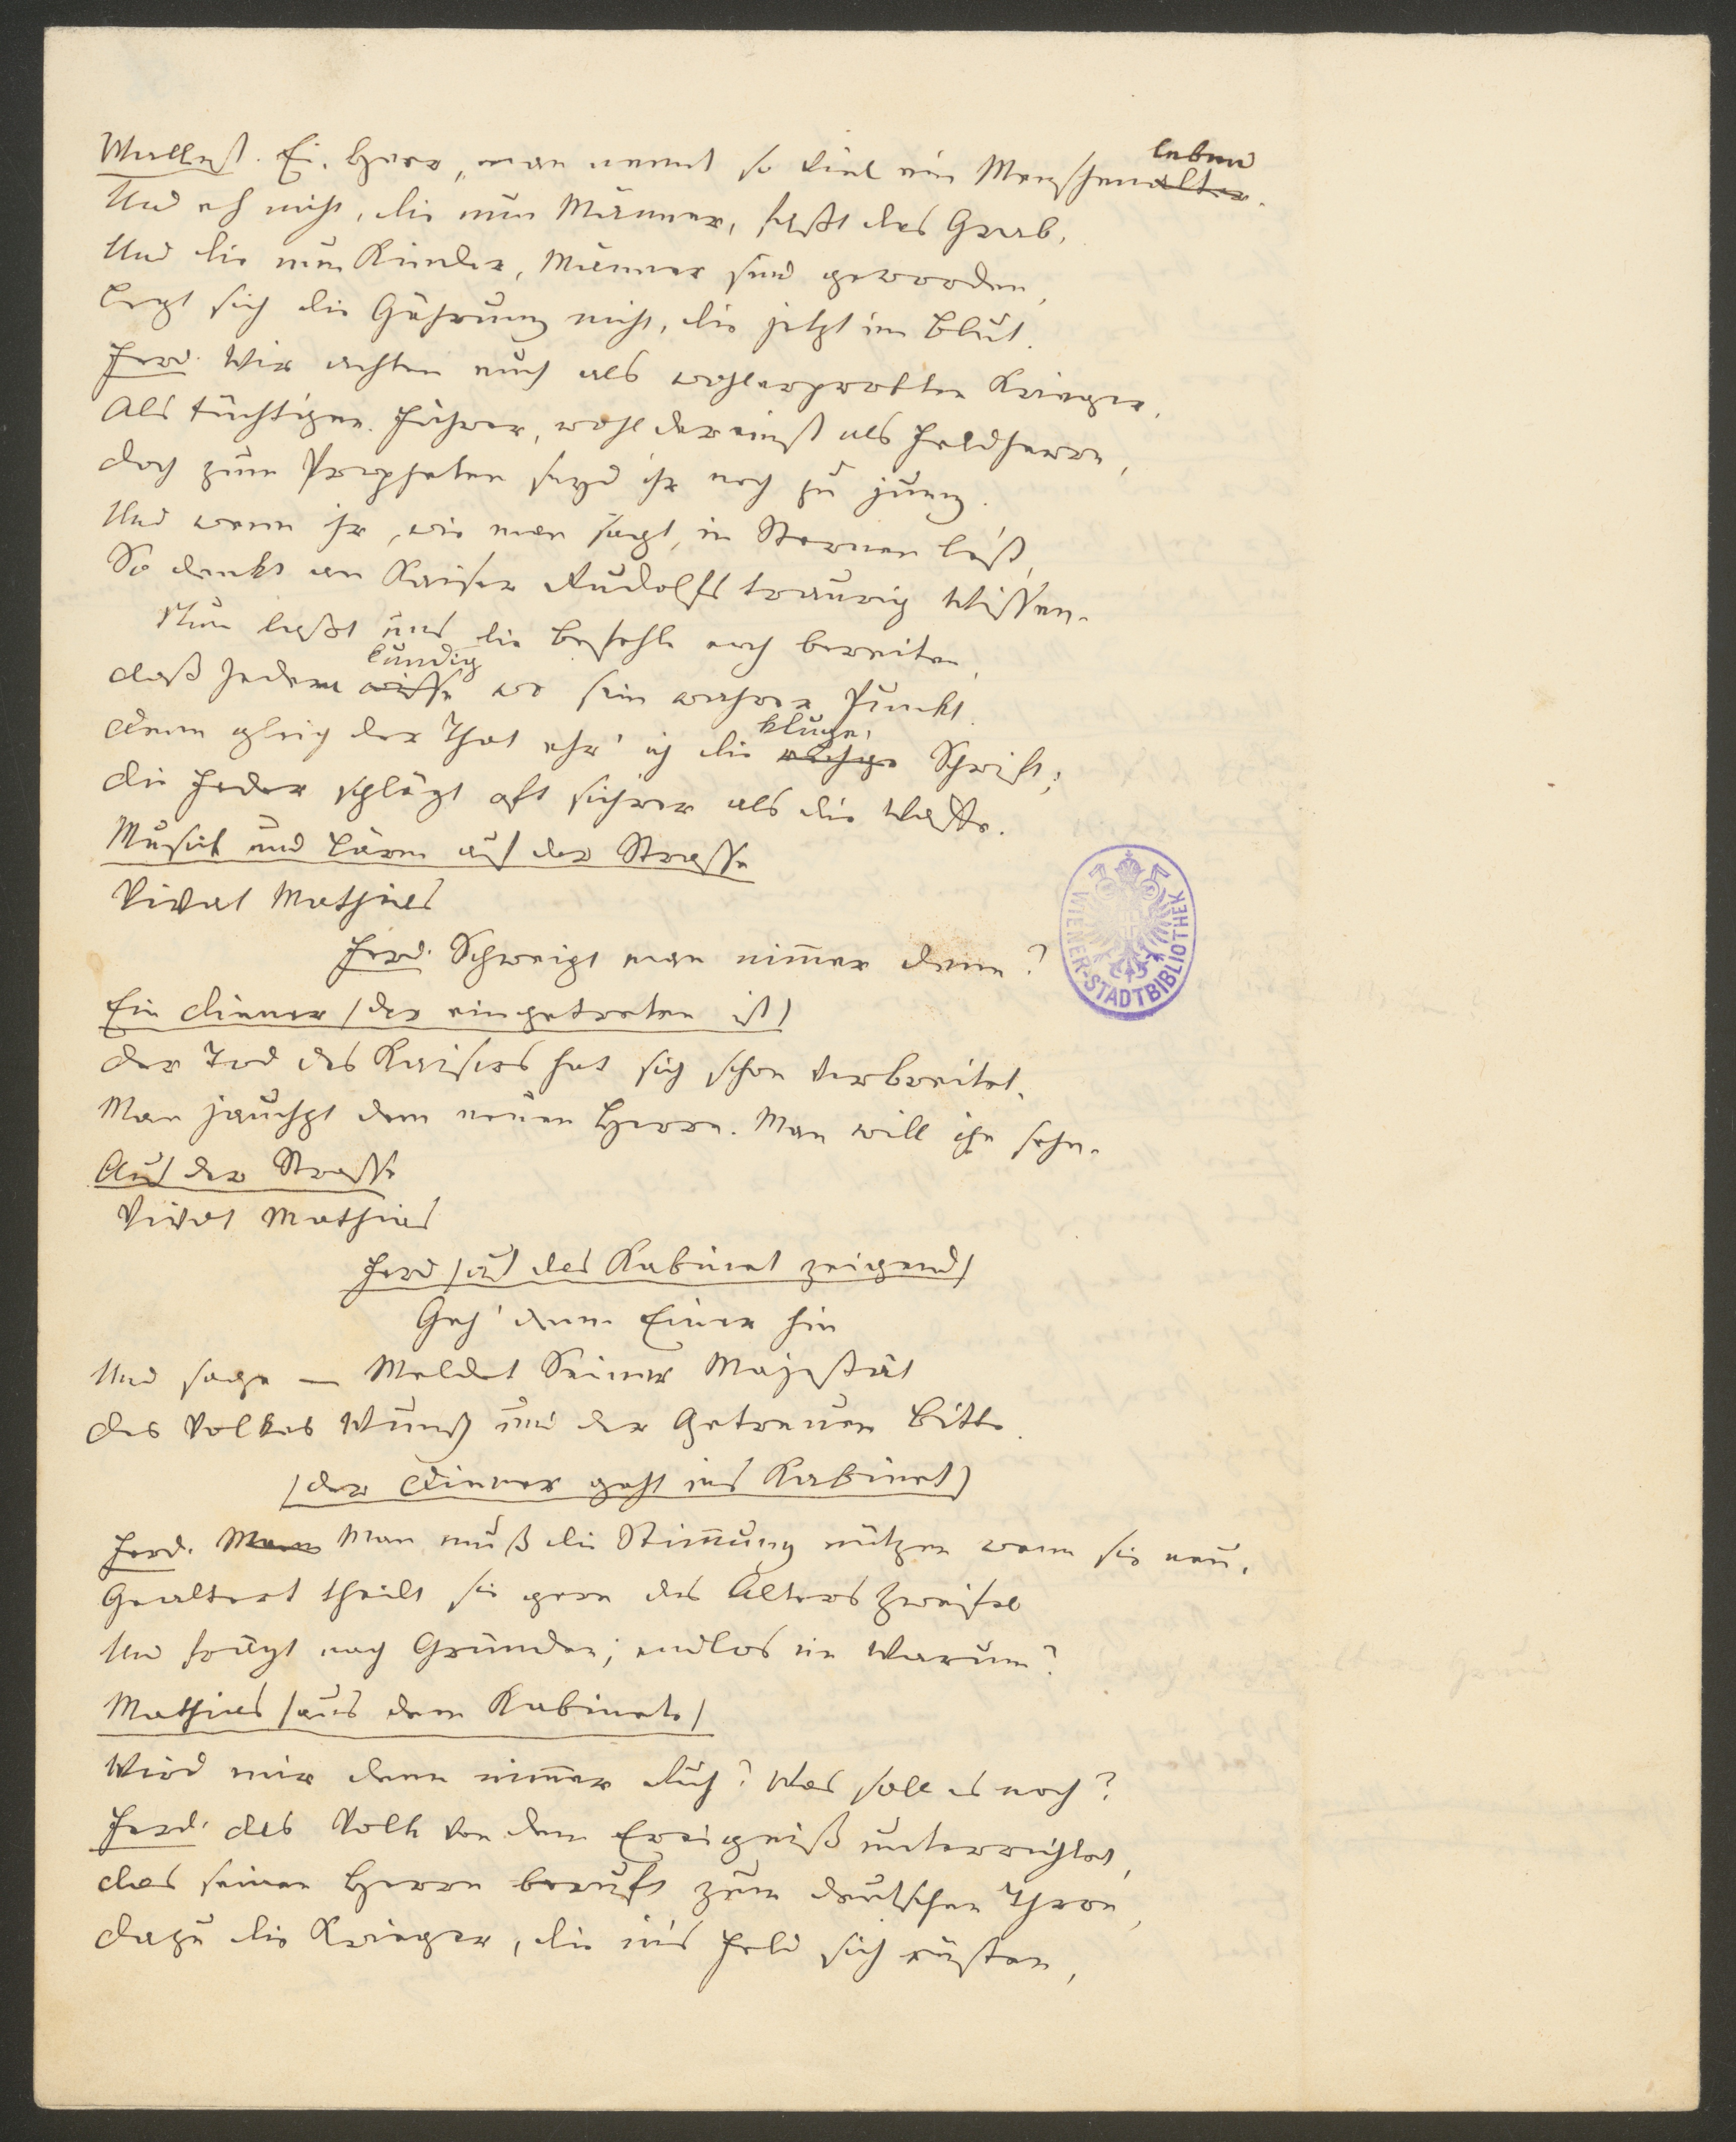 Wallenst. Ei, Herr, man nennt so viel ein Menschenalter leben.
Und eh nicht, die nun Männer, faßt das Grab,
Und die nun Kinder, Männer sind geworden,
Legt sich die Gährung nicht, die jetzt im Blut.
Ferd. Wir achten euch als wohlerprobten Krieger,
Als tüchtigen Führer, wohl dereinst als Feldherrn,
Doch zum Propheten seyd ihr noch zu jung.
Und wenn ihr, wie man sagt, in Sternen lest,
So denkt an Kaiser Rudolfs traurig Wissen.
Nun laßt uns die Befehle euch bereiten,
kundig
Daß Jedem wisse wo sein wahrer Punkt.
kluge,
Denn gleich der That ehr' ich die Schrift;
Die Feder schlägt oft sichrer als die Waffe.
Musik und Lärm auf der Strasse
Vivat Mathias
Ferd. Schweigt man nimmer denn?
Ein Diener (der eingetreten ist)
Der Tod des Kaisers hat sich schon verbreitet,
Man jauchzt dem neuen Herrn. Man will ihn sehn.
Auf der Strasse
Vivat Mathias
Ferd (auf das Kabinet zeigend)
Geh' denn Einer hin
Und sage — Meldet Seiner Majestät
Des Volkes Wunsch und der Getreuen Bitte.
(der Diener geht ins Kabinet)
Ferd. Man Man muß die Stimmung nützen wenn sie neu,
Gealtert theilt sie gern des Alters Zweifel
Und frägt nach Gründen; endlos ein Warum?
Mathias (aus dem Kabinete)
Wird mir denn nimmer Ruh? Was soll es noch?
Ferd. Das Volk von dem Ereigniß unterrichtet,
Das seinen Herrn beruft zum deutschen Thron,
Dazu die Krieger, die ins Feld sich rüsten,
WIENER-STADTBIBLIOTHEK